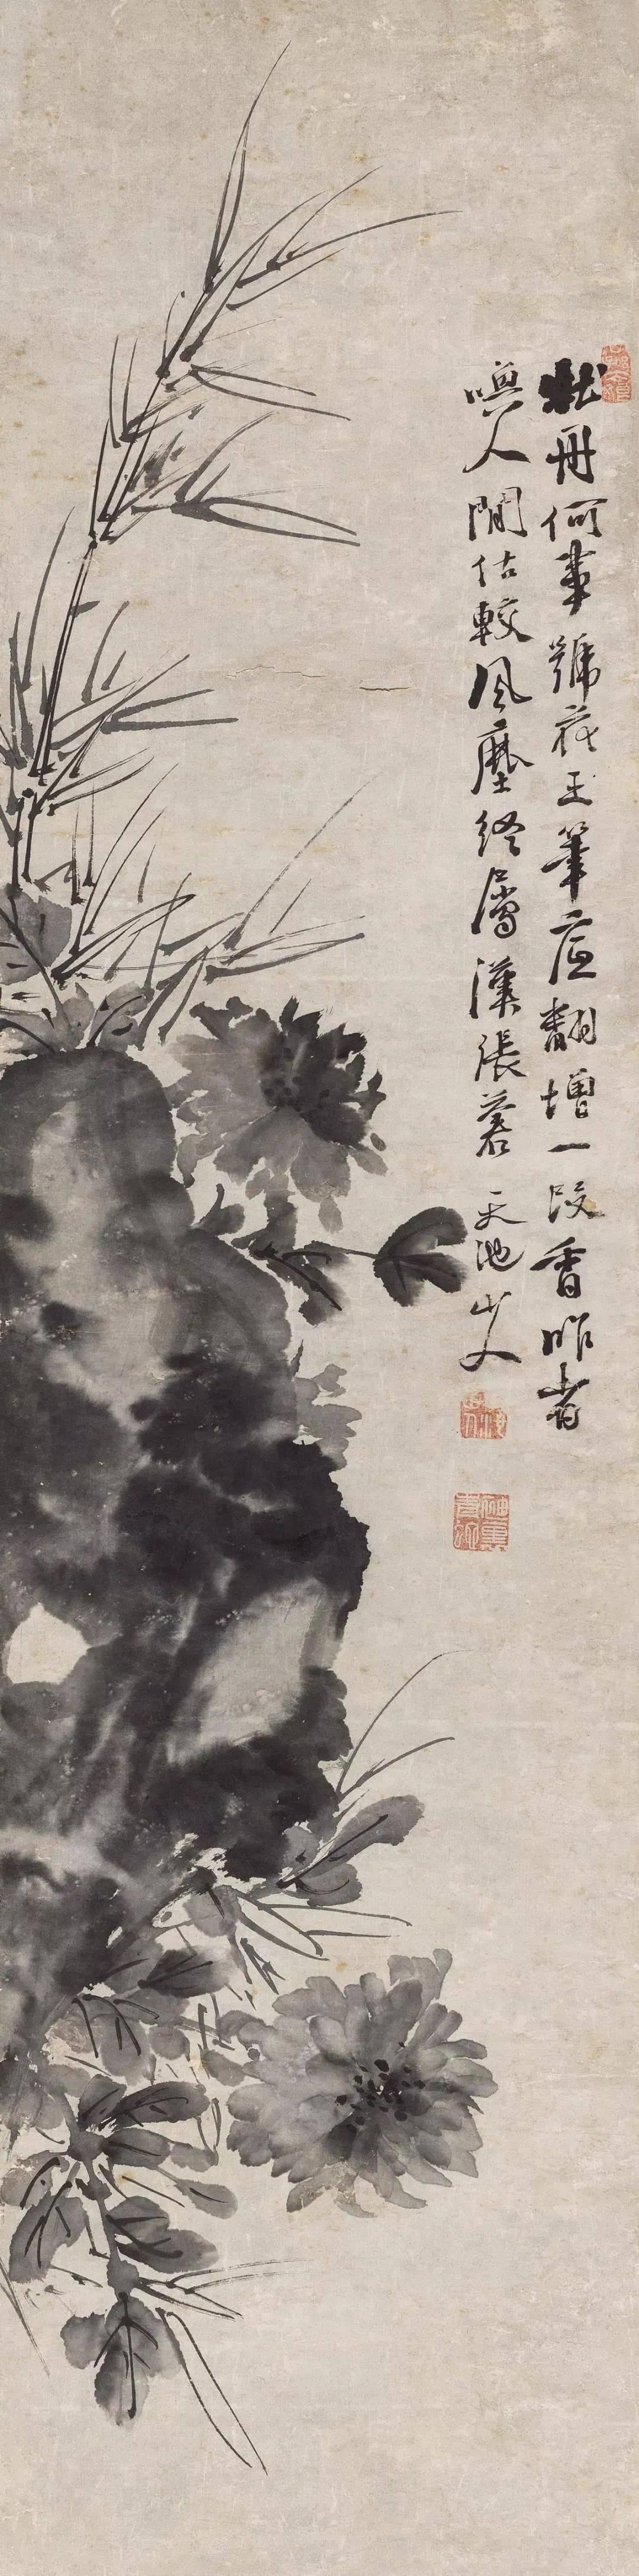 牡丹何事號花王筆底翻增一段香昨者
喚人間估較風塵終屬漢張蒼 天池山人